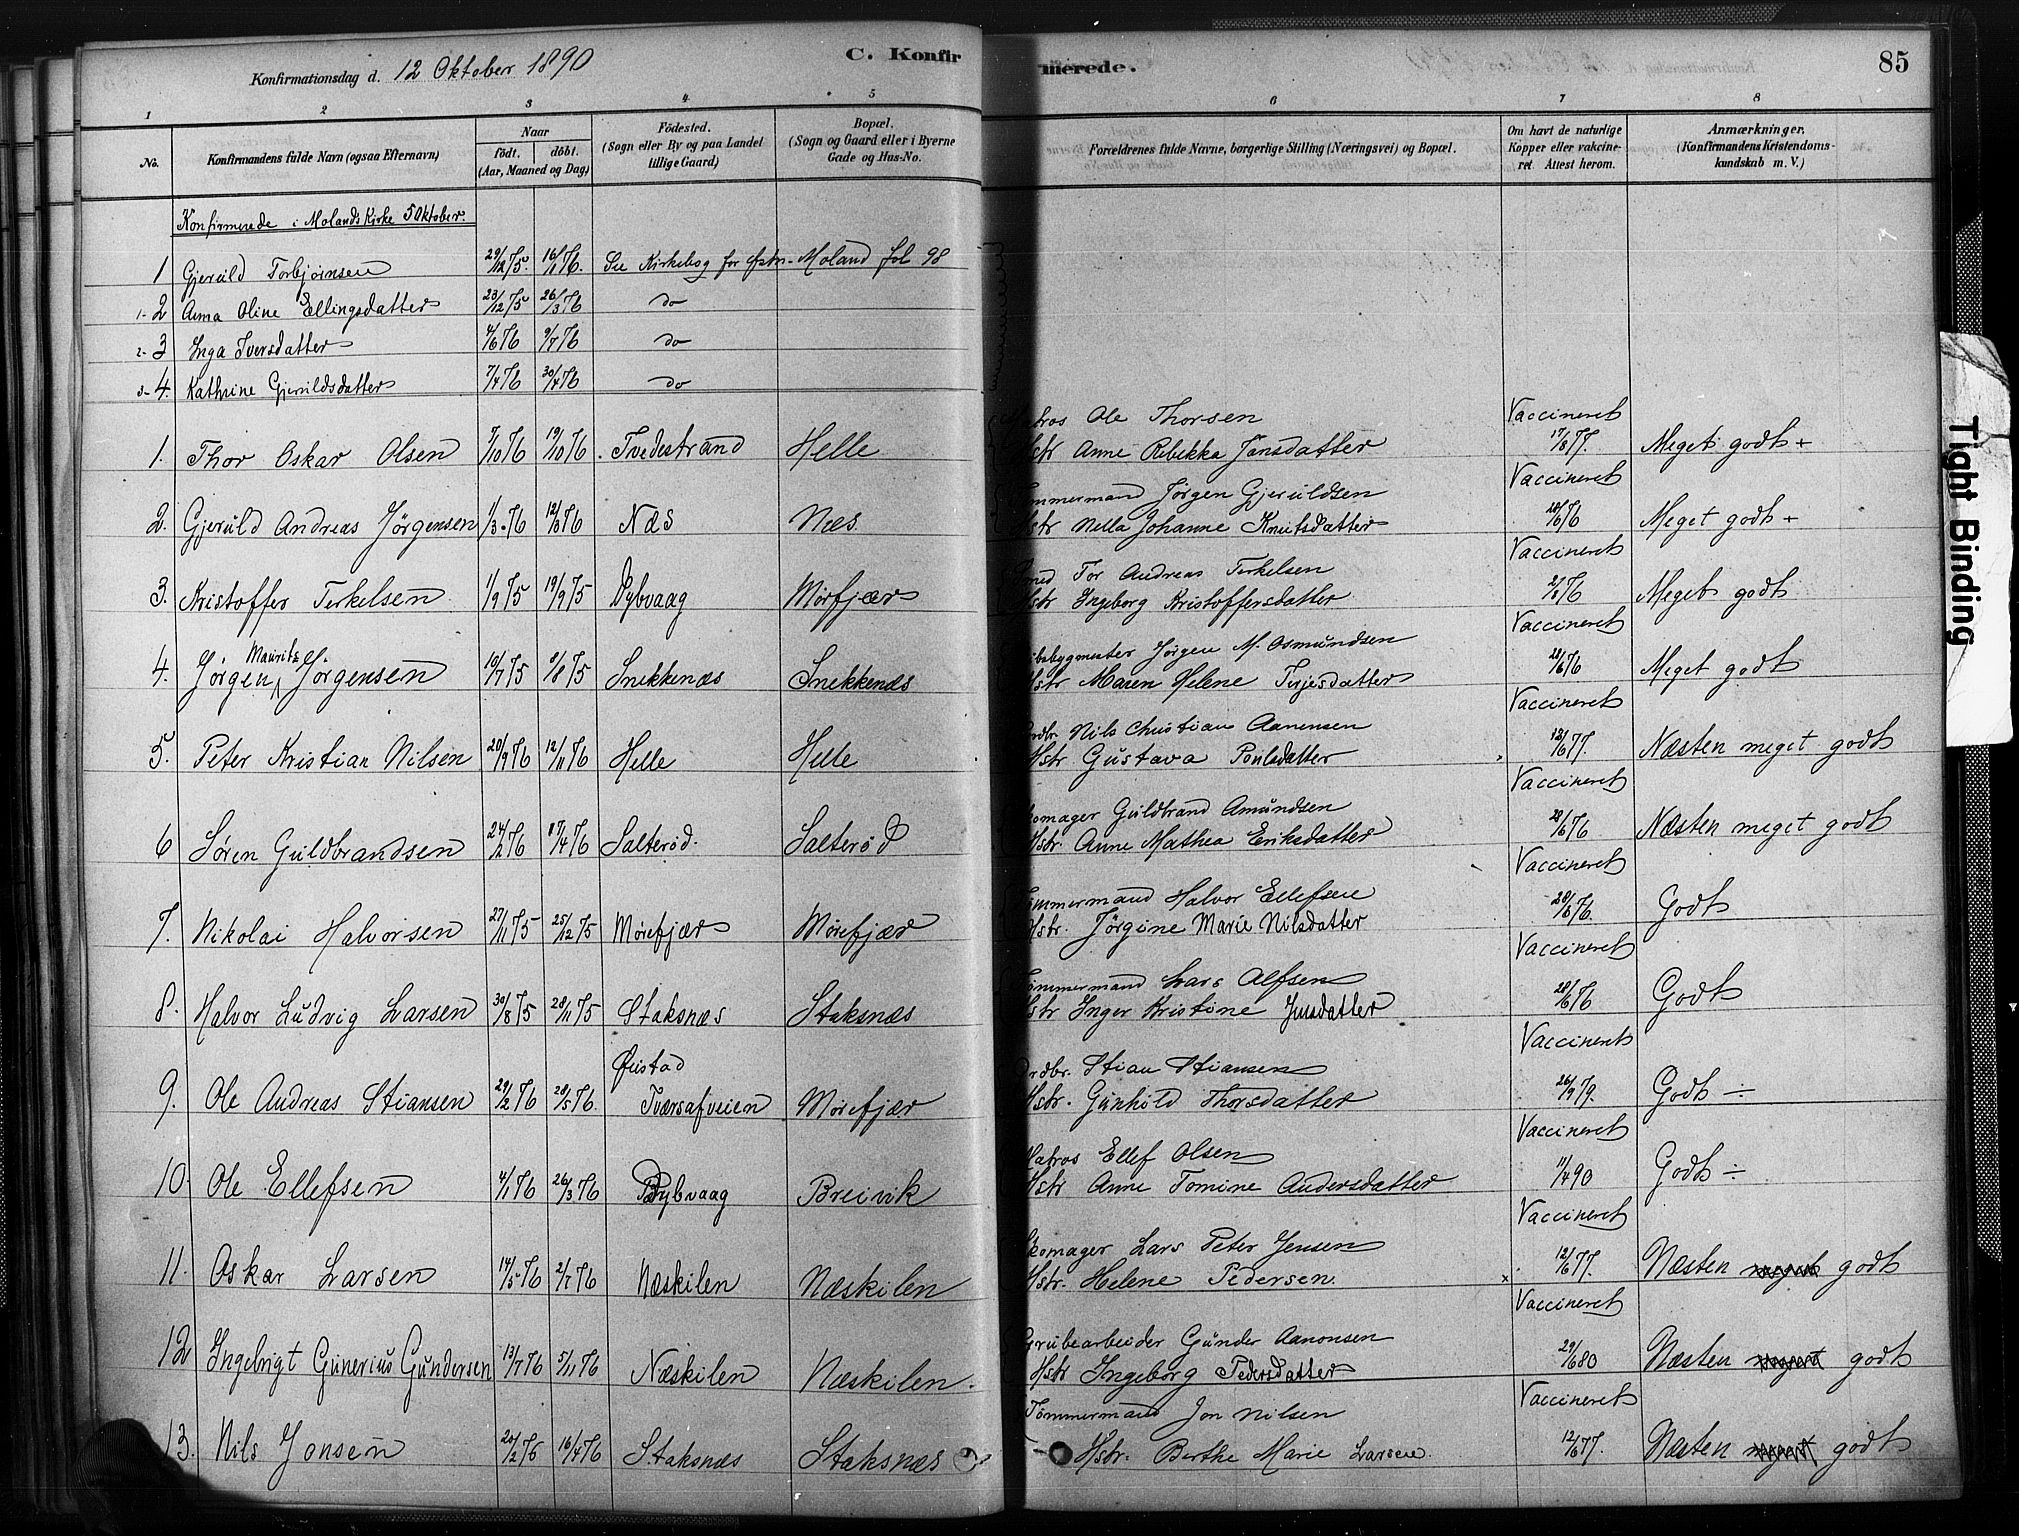 Konfirmationsdag d. 12 Oktober 1890 C. Konfirmerede. 85
1 2 3 4 5 6 7 8
No. Konfirmandens fulde Navn (ogsaa Efternavn) Naar født. døbt. (Aar, Maaned og Dag) Fødested. (Sogn eller By og paa Landet tillige Gaard) Bopæl. (Sogn og Gaard eller i Byerne Gade og Hus-No. Forældrenes fulde Navne, borgerlige Stilling (Næringsvei) og Bopæl. Om havt de naturlige Kopper eller vakcineret Attest herom. Anmærkninger. (Konfirmandens Kristendomskundskab m. V.)
Konfirmerede i Molands Kirke 5 Oktober.
1 Gjeruld Torbjørnsen 29/12 75. 16/1 76. See Kirkebog for Østre-Moland fol 98
1- 2 Anna Oline Ellingsdatter 23/12 75 26/3 76 do
2- 3 Inga Iversdatter 4/6 76 9/7 76 do
3- 4. Kathrine Gjeruldsdatter 7/4 76 30/4 76 do
1. Thor Oskar Olsen 7/10 76 19/10 76. Tvedestrand Helle
tros Ole Thorsen
Hstr Anne Rebekka Jansdatter Vaccineret 17/8 77. Meget godt +
2. Gjeruld Andreas Jørgensen 1/3 76 12/3 76 Næs Næs.
Tømmermand Jørgen Gjeruldsen
Hstr Nella Johanne Knutsdatter Vaccineret 28/6 76 Meget godt +
3. Kristoffer Terkelsen 1/9 75 19/9 75 Dybvaag Mørfjær
Smed Tor Andreas Terkelsen
Hstr Ingeborg Kristoffersdatter Vaccineret 76 Meget godt
4. Jørgen Mauritz Jørgensen 10/7 75 8/8 75 Snekkenæs Snekkenæs
ibsbygmester Jørgen M. Osmundsen
Hstr Maren Helene Terjesdatter Vaccineret 28/6 76 Meget godt
5. Peter Kristian Nilsen 20/9 76 12/11 76 Helle Helle
Jordbr. Nils Christian Aanensen
Hstr Gustava Poulsdatter Vaccineret 12/6 77. Næsten meget godt
6 Søren Guldbrandsen 24/2 76 17/4 76 Salterød. Salterød
Skomager Guldbrand Amundsen
Hstr. Anne Mathea Eriksdatter Vaccineret 28/6 76 Næsten meget godt
7. Nikolai Halvorsen 27/11 75 25/12 75 Mørefjær Mørefjær
Tømmermand Halvor Ellefsen
Hstr. Jørgine Marie Nilsdatter Vaccineret 28/6 76. Godt
8. Halvor Ludvig Larsen 30/8 75 28/11 75 Staksnæs Staksnæs
Tømmermand Lars Alfsen
Hstr Inger Kristine Jensdatter Vaccineret 28/6 76 Godt
9. Ole Andreas Stiansen 29/2 76 28/5 76. Øiestad Tværsafveien Mørefjær
Jordbr. Stian Stiansen
Hstr. Gunhild Thorsdatter Vaccineret 26/9 79. Godt ÷
10. Ole Ellefsen 4/1 76 26/3 76 Dybvaag Breivik
Matros Ellef Olsen
Hstr Anne Tomine Andersdatter Vaccineret 11/4 90 Godt ÷
11. Oskar Larsen 14/5 76 2/7 76 Næskilen Næskilen
Skomager Lars Peter Jensen
Hstr. Helene Pedersen. Vaccineret 12/6 77. Næsten meget godt
12 Ingebrigt Gunerius Gundersen 13/7 76 5/11 76 Næskilen Næskilen.
Grubearbeider Gunder Aanonsen
Hstr Ingeborg Pedersdatter Vaccineret 29/6 80 Næsten meget godt
13. Nils Jonsen 20/2 76 16/4 76 Staksnæs Staksnæs
Tømmermand Jon Nilsen
Hstr. Berthe Marie Larsen. Vaccineret 12/6 77. Næsten meget godt
Tight Binding